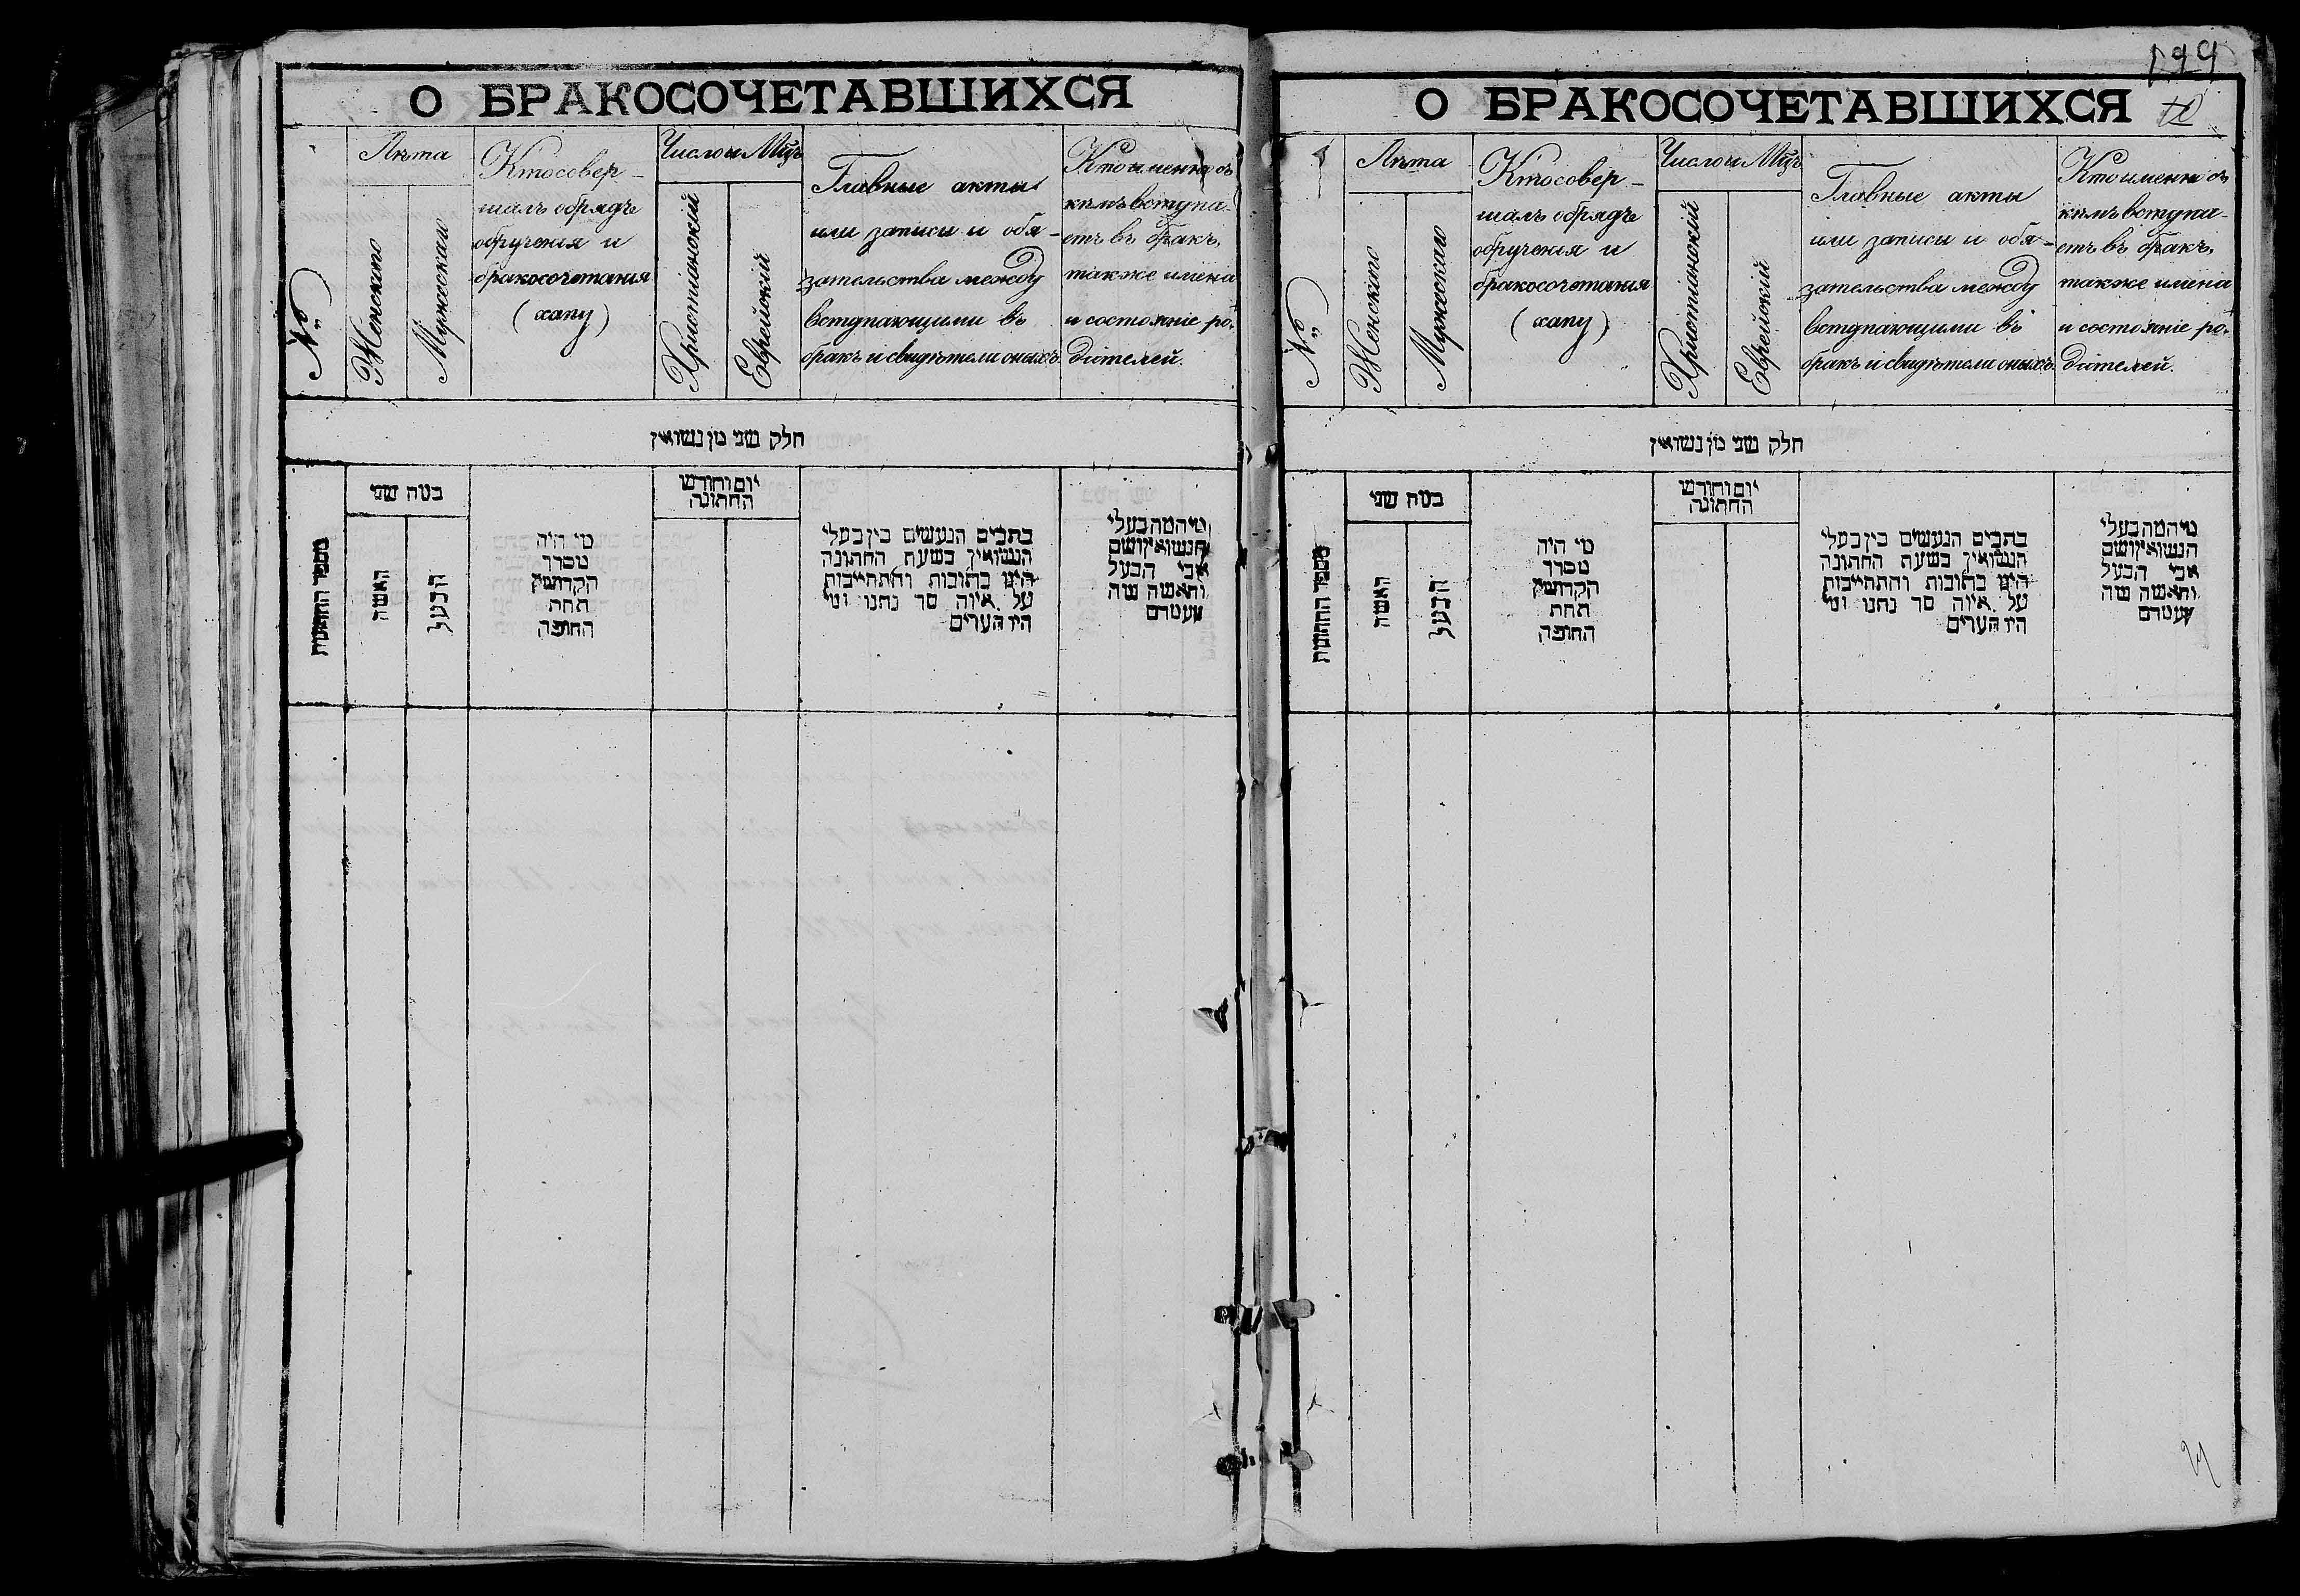 О БРАКОСОЧЕТАВШИХСЯ
№
Лѣта
Женскаго
Мужескаго
Кто совер-
шалъ обрядъ
обрученія и
бракосочетанія
(хупу)
Число и Мцъ
Христіанскій
Еврейскій
Главные акты
или записи и обя-
зательства между
вступающими въ
бракъ и свидѣтели оныхъ.
Кто именно съ
кѣмъ вступа-
етъ въ бракъ,
также имена
и состояніе ро-
дителей.
חלק שני מן נשואין
מספר החתונות
כמה שני
האשה
הבעל
מי היה
מסדר
הקדושין
תחת
החופה
יום וחודש
החתונה
כתבים הנעשים בין בעלי
הנשואין בשעת החתונה
היינו כתובות והתחייבות
על איזה סך נתנו ומי
היו העדים
מי המה בעלי
הנשואין ושם
אבי הבעל
והאשה ומה
מעמדם
199
О БРАКОСОЧЕТАВШИХСЯ
№
Лѣта
Женскаго
Мужескаго
Кто совер-
шалъ обрядъ
обрученія и
бракосочетанія
(хупу)
Число и Мцъ
Христіанскій
Еврейскій
Главные акты
или записи и обя-
зательства между
вступающими въ
бракъ и свидѣтели оныхъ.
Кто именно съ
кѣмъ вступа-
етъ въ бракъ,
также имена
и состояніе ро-
дителей.
חלק שני מן נשואין
מספר החתונות
כמה שני
האשה
הבעל
מי היה
מסדר
הקדושין
תחת
החופה
יום וחודש
החתונה
כתבים הנעשים בין בעלי
הנשואין בשעת החתונה
היינו כתובות והתחייבות
על איזה סך נתנו ומי
היו העדים
מי המה בעלי
הנשואין ושם
אבי הבעל
והאשה ומה
מעמדם